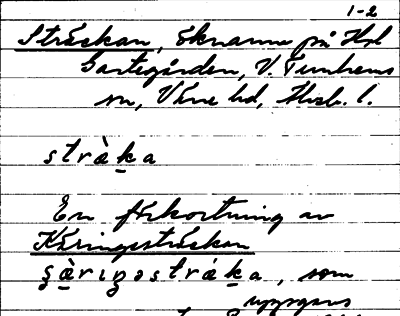 1-2
Sträckan, öknamn på Hd
Gastegården, V. Tunhems
sn, Väne hd, Älvsb. l.
stràka
En förkortning av
Käringesträckan
ʂàriŋəstráka, som
uppgavs